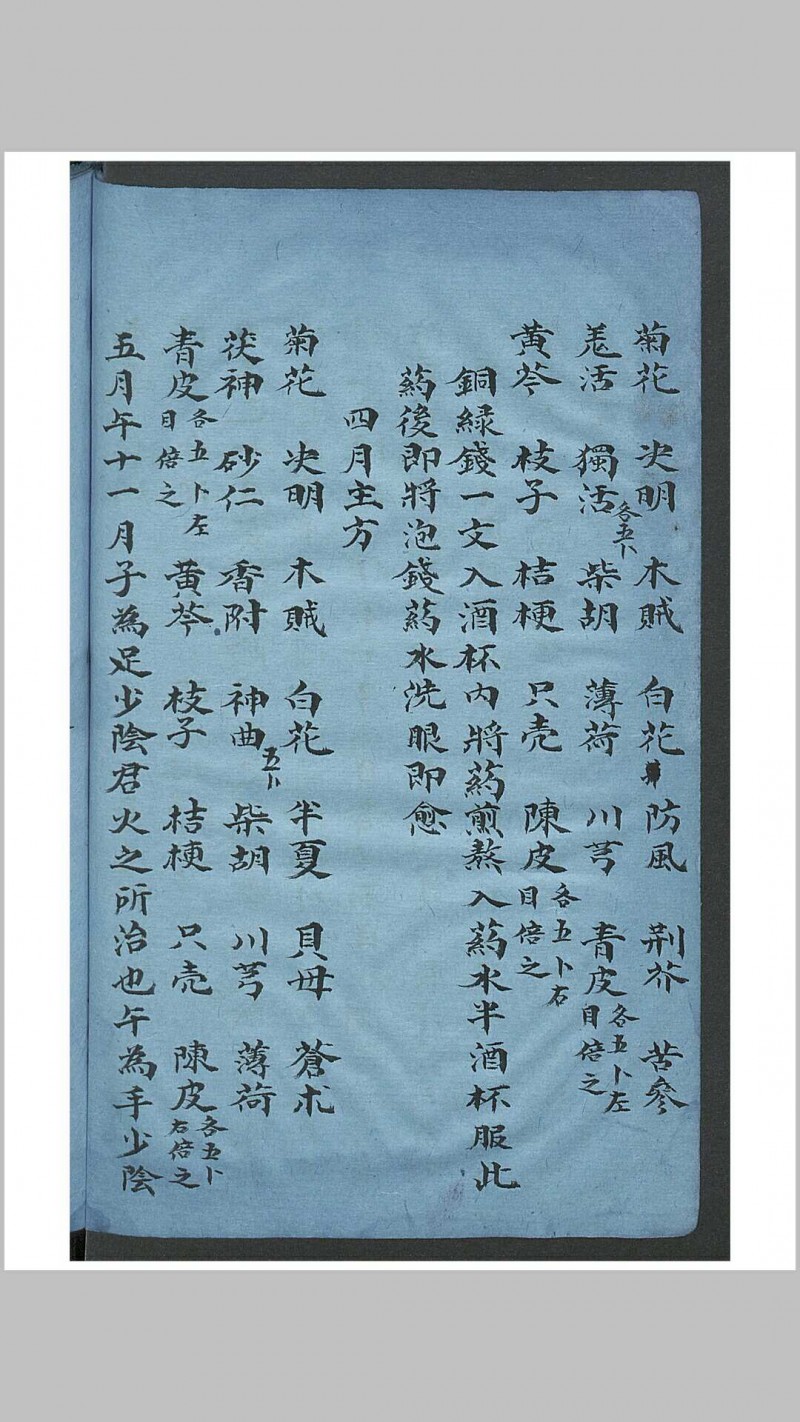 菊花 决明 木賊 白花 防風 荆芥 苦參
羗活 獨活各五卜 柴胡 薄荷 川芎 青皮各五卜左目倍之
黄芩 枝子 桔梗 只壳 陳皮各五卜右目倍之
銅緑錢一文入酒杯内將葯煎熬入葯水半酒杯服此
葯後即將泡錢葯水洗眼即愈
四月主方
菊花 决明 木賊 白花 半夏 貝母 蒼朮
茯神 砂仁 香附 神曲五卜 柴胡 川芎 薄荷
青皮各五卜左目倍之 黄芩 枝子 桔梗 只壳 陳皮各五卜右倍之
五月午十一月子為足少陰君火之所治也午為手少陰